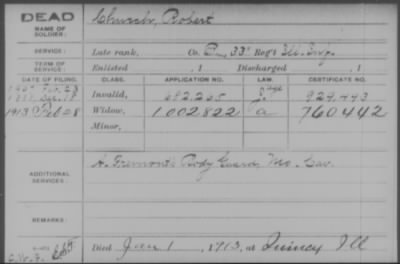 DEAD
NAME OF SOLDIER:
Church, Robert
SERVICE:
Late rank, Co. 33" Reg't Ill. Inf.
TERM OF SERVICE:
Enlisted , 1 Discharged , 1
DATE OF FILING. CLASS. APPLICATION NO. LAW. CERTIFICATE NO.
Invalid, 692.205 929.443
1913 Feb 8 Widow, 1.002822 a 760442
Minor,
ADDITIONAL SERVICES:
A. Fremont's Body Guard Mo. Cav.
REMARKS:
Died Jan 1 , 1913, at Quincy Ill